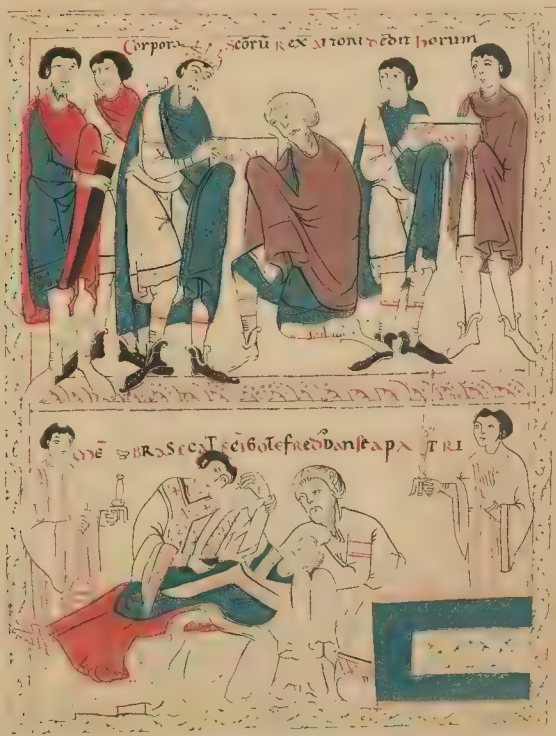 Corpora Scōrū Rex Attoni dedit horum
mēBRA SecaT scī Gotefred' Dans ea pATRI